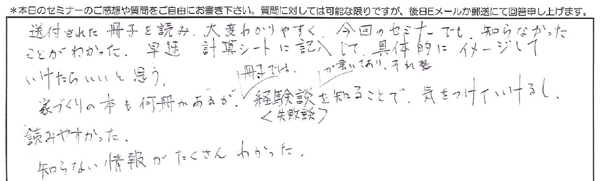 ＊本日のセミナーのご感想や質問をご自由にお書き下さい。質問に対しては可能な限りですが、後日Eメールか郵送にて回答申し上げます。
送付された冊子を読み、大変わかりやすく、今回のセミナーでも、知らなかった
ことがわかった。早速 計算シートに記入して、具体的にイメージして
いけたらいいと思う。
冊子では、 が書いており、それを
家づくりの本も何冊かあるが、経験談を知ることで、気をつけていけるし、
＜失敗談＞
読みやすかった。
知らない情報がたくさんわかった。